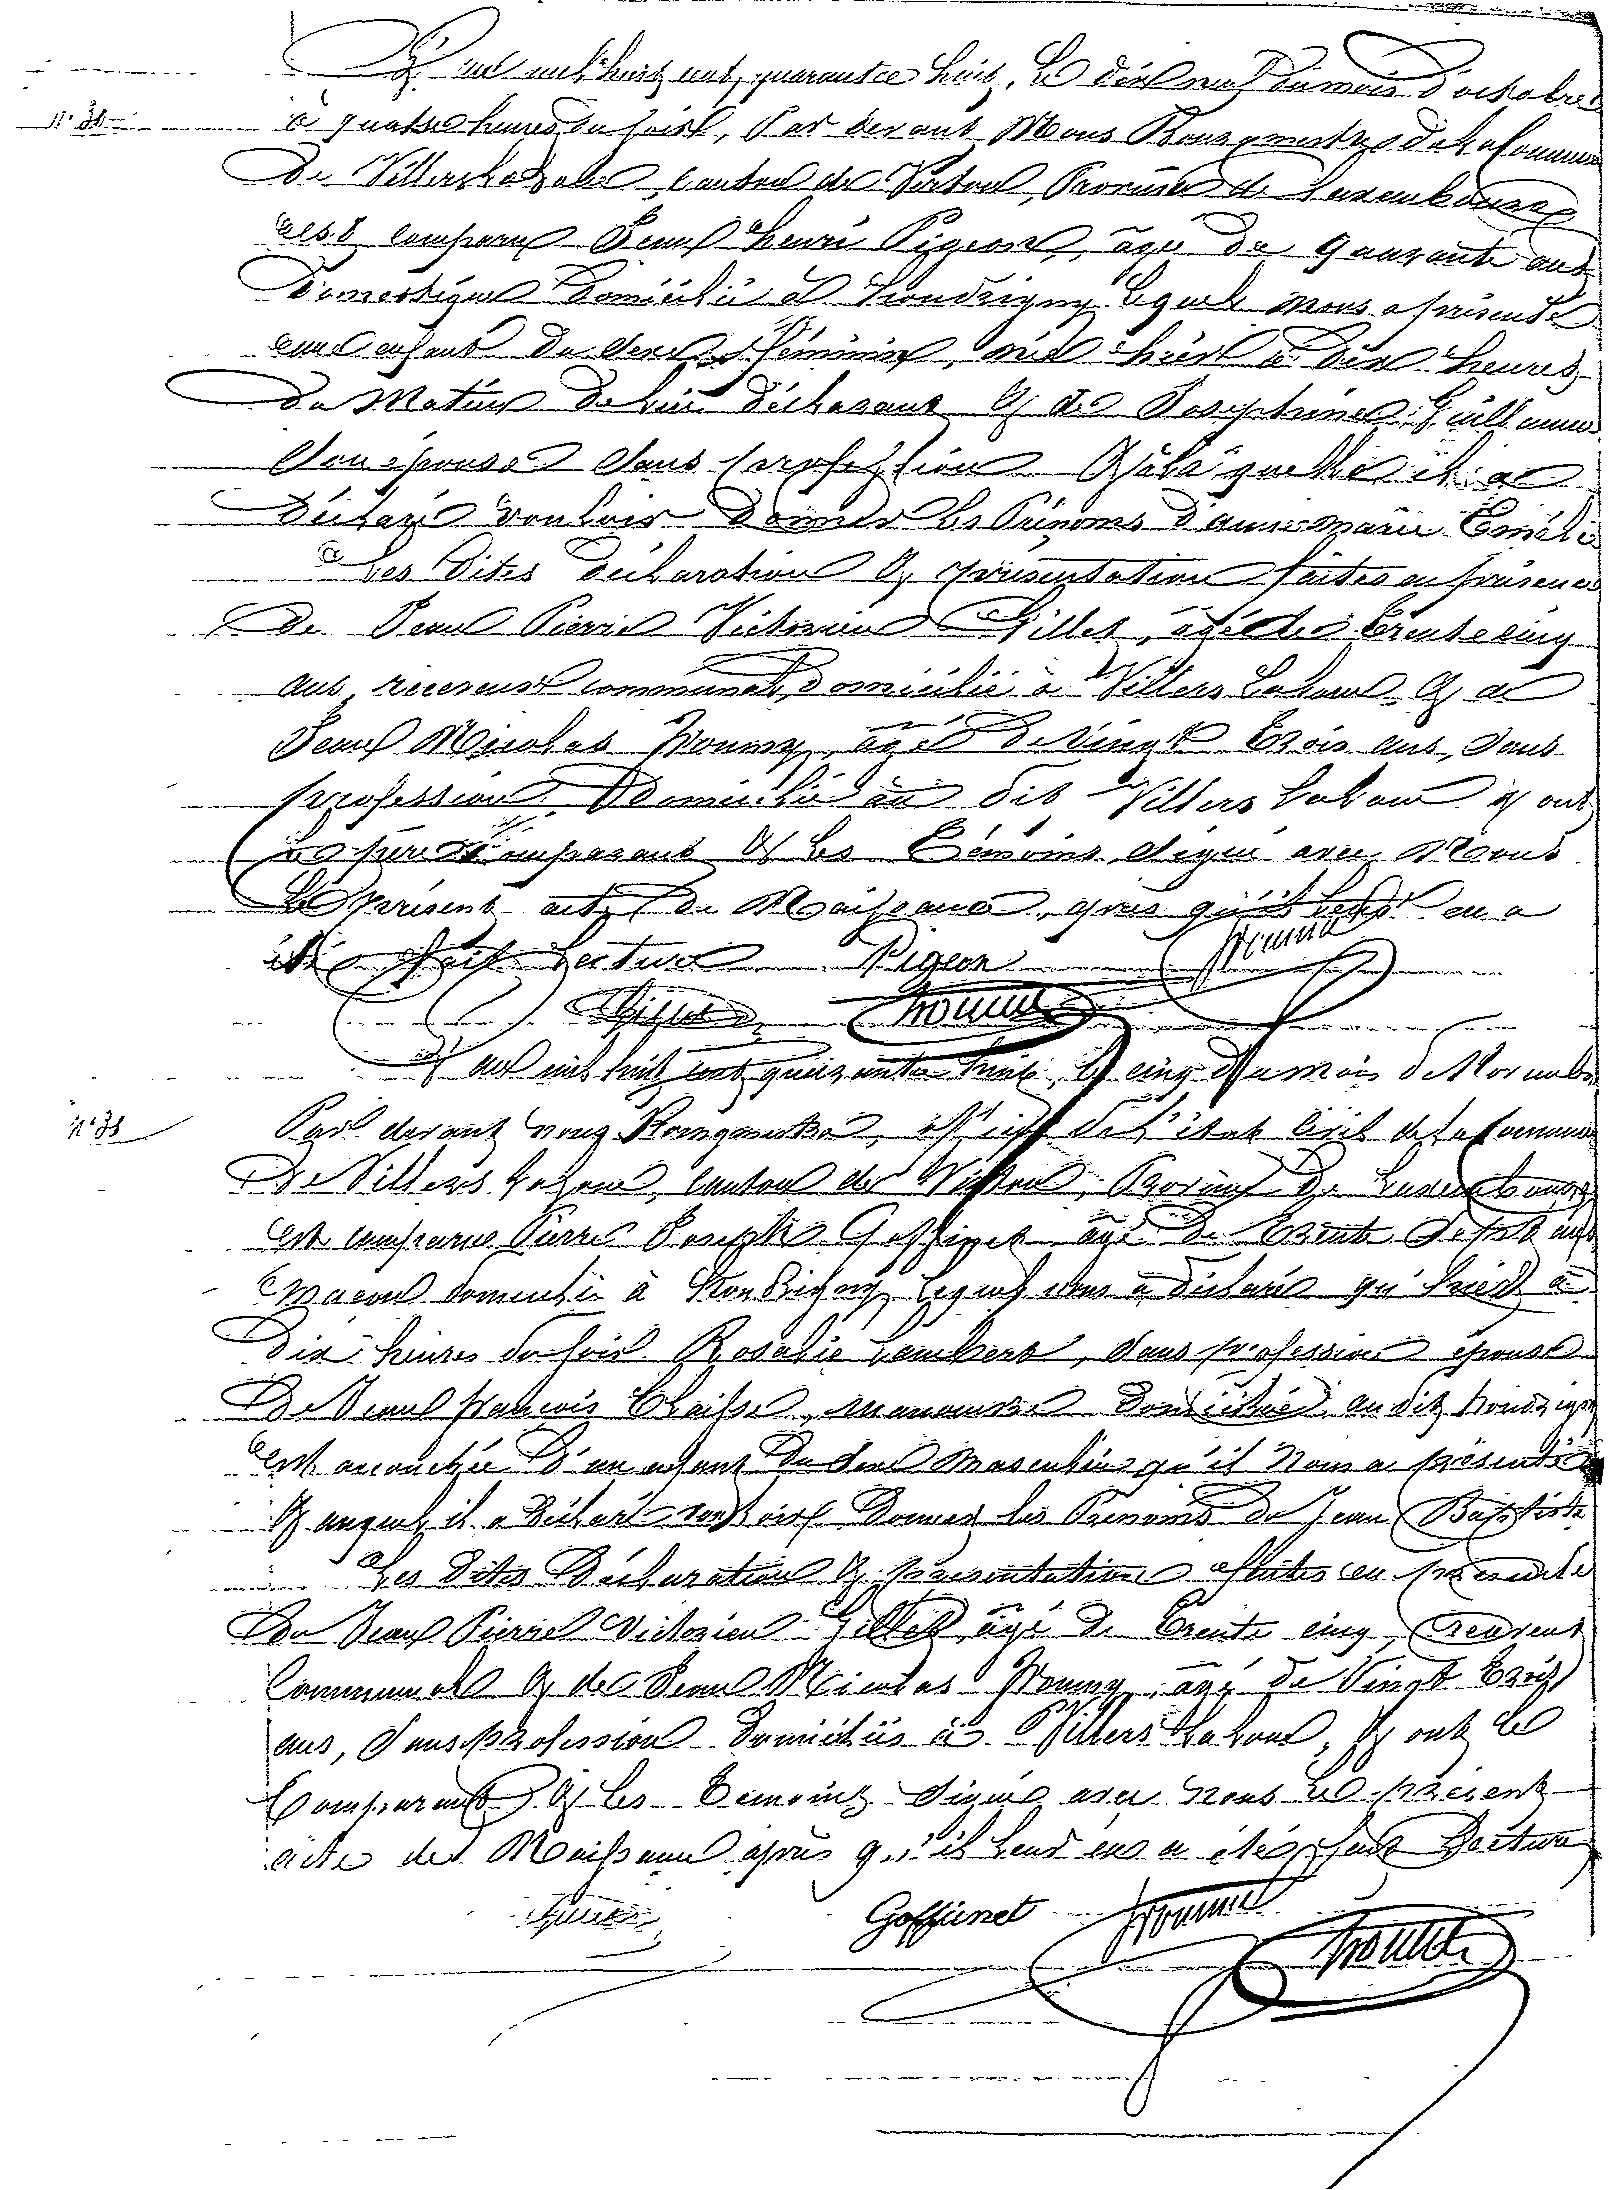 L'an mil huit cent quarante huit, le dix neuf du mois d'octobre
n° 30
à quatre heures du soir, Par devant Nous Bourgmestre de la Commune
De Villers la Loue, Canton de Virton, Province de Luxembourg
est comparu Jean henri Pigeon, âgé de quarante ans
Domestique Domicilié à houdrigny lequel nous a présenté
un enfant du sexe féminin, née hier à dix heures
Du Matin de lui déclarant et de Joséphine Guillaume
son épouse sans profession et à la quelle il a
Déclaré vouloir donner les Prénoms d'anne marie Emélie
Les Dites déclaration et présentation faites en présence
de Jean Pierre Victorien Gillet, âgé de trente cinq
ans, receveur communal, domicilié à Villers la loue et de
Jean Nicolas âgé de vingt trois ans, sans
profession Domicilié au dit Villers la loue et ont
les père comparant et les témoins signé avec Nous
le présent acte de Naissance, après qu'il leur en a
été fait Lecture Pigeon
L'an mil huit cent quarante huit, le cinq du mois de Novembre
n° 31
Par devant nous Bourgmestre, officier de l'état Civil de la Commune
De Villers la Loue, Canton de Virton, Province De Luxembourg
est comparu Pierre Joseph Goffinet âgé de trente sept ans
maçon domicilié à houdrigny lequel nous a déclaré qu'hier à
dix heures du soir Rosalie Lambert, sans profession épouse
De Jean françois Claisse, manoeuvre Domicilié au dit houdrigny
est accouchée d'un enfant Du sexe masculin qu'il Nous a présenté
et auquel il a Déclaré vouloir Donner les Prenoms de Jean Baptiste
Les Dites Déclaration et présentation faites en présence
De Jean Pierre Victorien Gillet, âgé de trente cinq, receveur
Communal et de Jean Nicolas âgé de vingt trois
ans, sans profession Domiciliés à Villers la loue, et ont le
Comparant et les temoins signé avec nous le présent
acte de Naissance après qu'il leur en a été fait Lecture
Goffinet